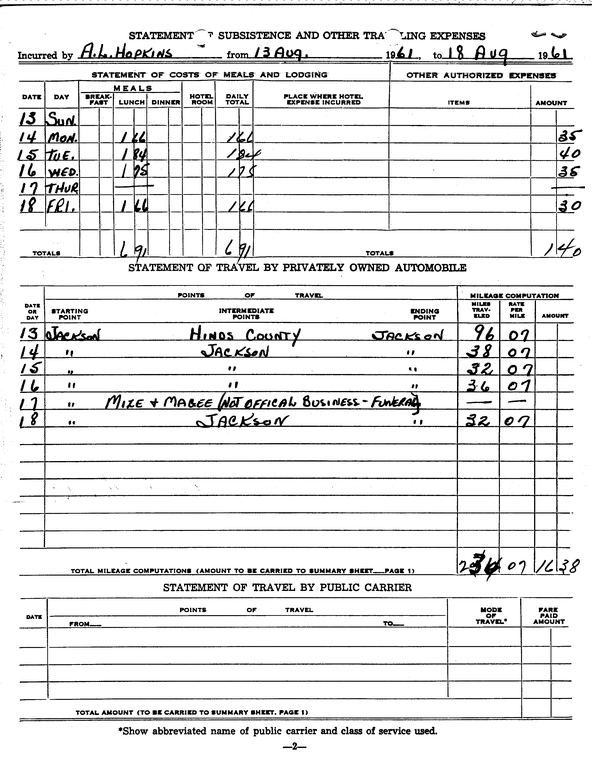 STATEMENT SUBSISTENCE AND OTHER TRA LING EXPENSES
Incurred by A.L. HOPKINS from 13 AUG. 1961, to 18 AUG 1961
STATEMENT OF COSTS OF MEALS AND LODGING OTHER AUTHORIZED EXPENSES
DATE DAY MEALS BREAK-FAST LUNCH DINNER HOTEL ROOM DAILY TOTAL PLACE WHERE HOTEL EXPENSE INCURRED ITEMS AMOUNT
13 SUN.
14 MON. 1 66 1 66 35
15 TUE. 1 84 1 84 40
16 WED. 1 75 1 75 35
17 THUR — —
18 FRI. 1 66 1 66 30
TOTALS 6 91 6 91 TOTALS 1 40
STATEMENT OF TRAVEL BY PRIVATELY OWNED AUTOMOBILE
POINTS OF TRAVEL MILEAGE COMPUTATION
DATE OR DAY STARTING POINT INTERMEDIATE POINTS ENDING POINT MILES TRAV-ELED RATE PER MILE AMOUNT
13 JACKSON HINDS COUNTY JACKSON 96 07
14 " JACKSON " 38 07
15 " " " 32 07
16 " " " 36 07
17 " MIZE & MAGEE (NOT OFFICAL BUSINESS - FUNERAL) — —
18 " JACKSON " 32 07
TOTAL MILEAGE COMPUTATIONS (AMOUNT TO BE CARRIED TO SUMMARY SHEET PAGE 1) 234 07 16 38
STATEMENT OF TRAVEL BY PUBLIC CARRIER
DATE POINTS OF TRAVEL MODE OF TRAVEL* FARE PAID AMOUNT
FROM TO
TOTAL AMOUNT (TO BE CARRIED TO SUMMARY SHEET, PAGE 1)
*Show abbreviated name of public carrier and class of service used.
—2—